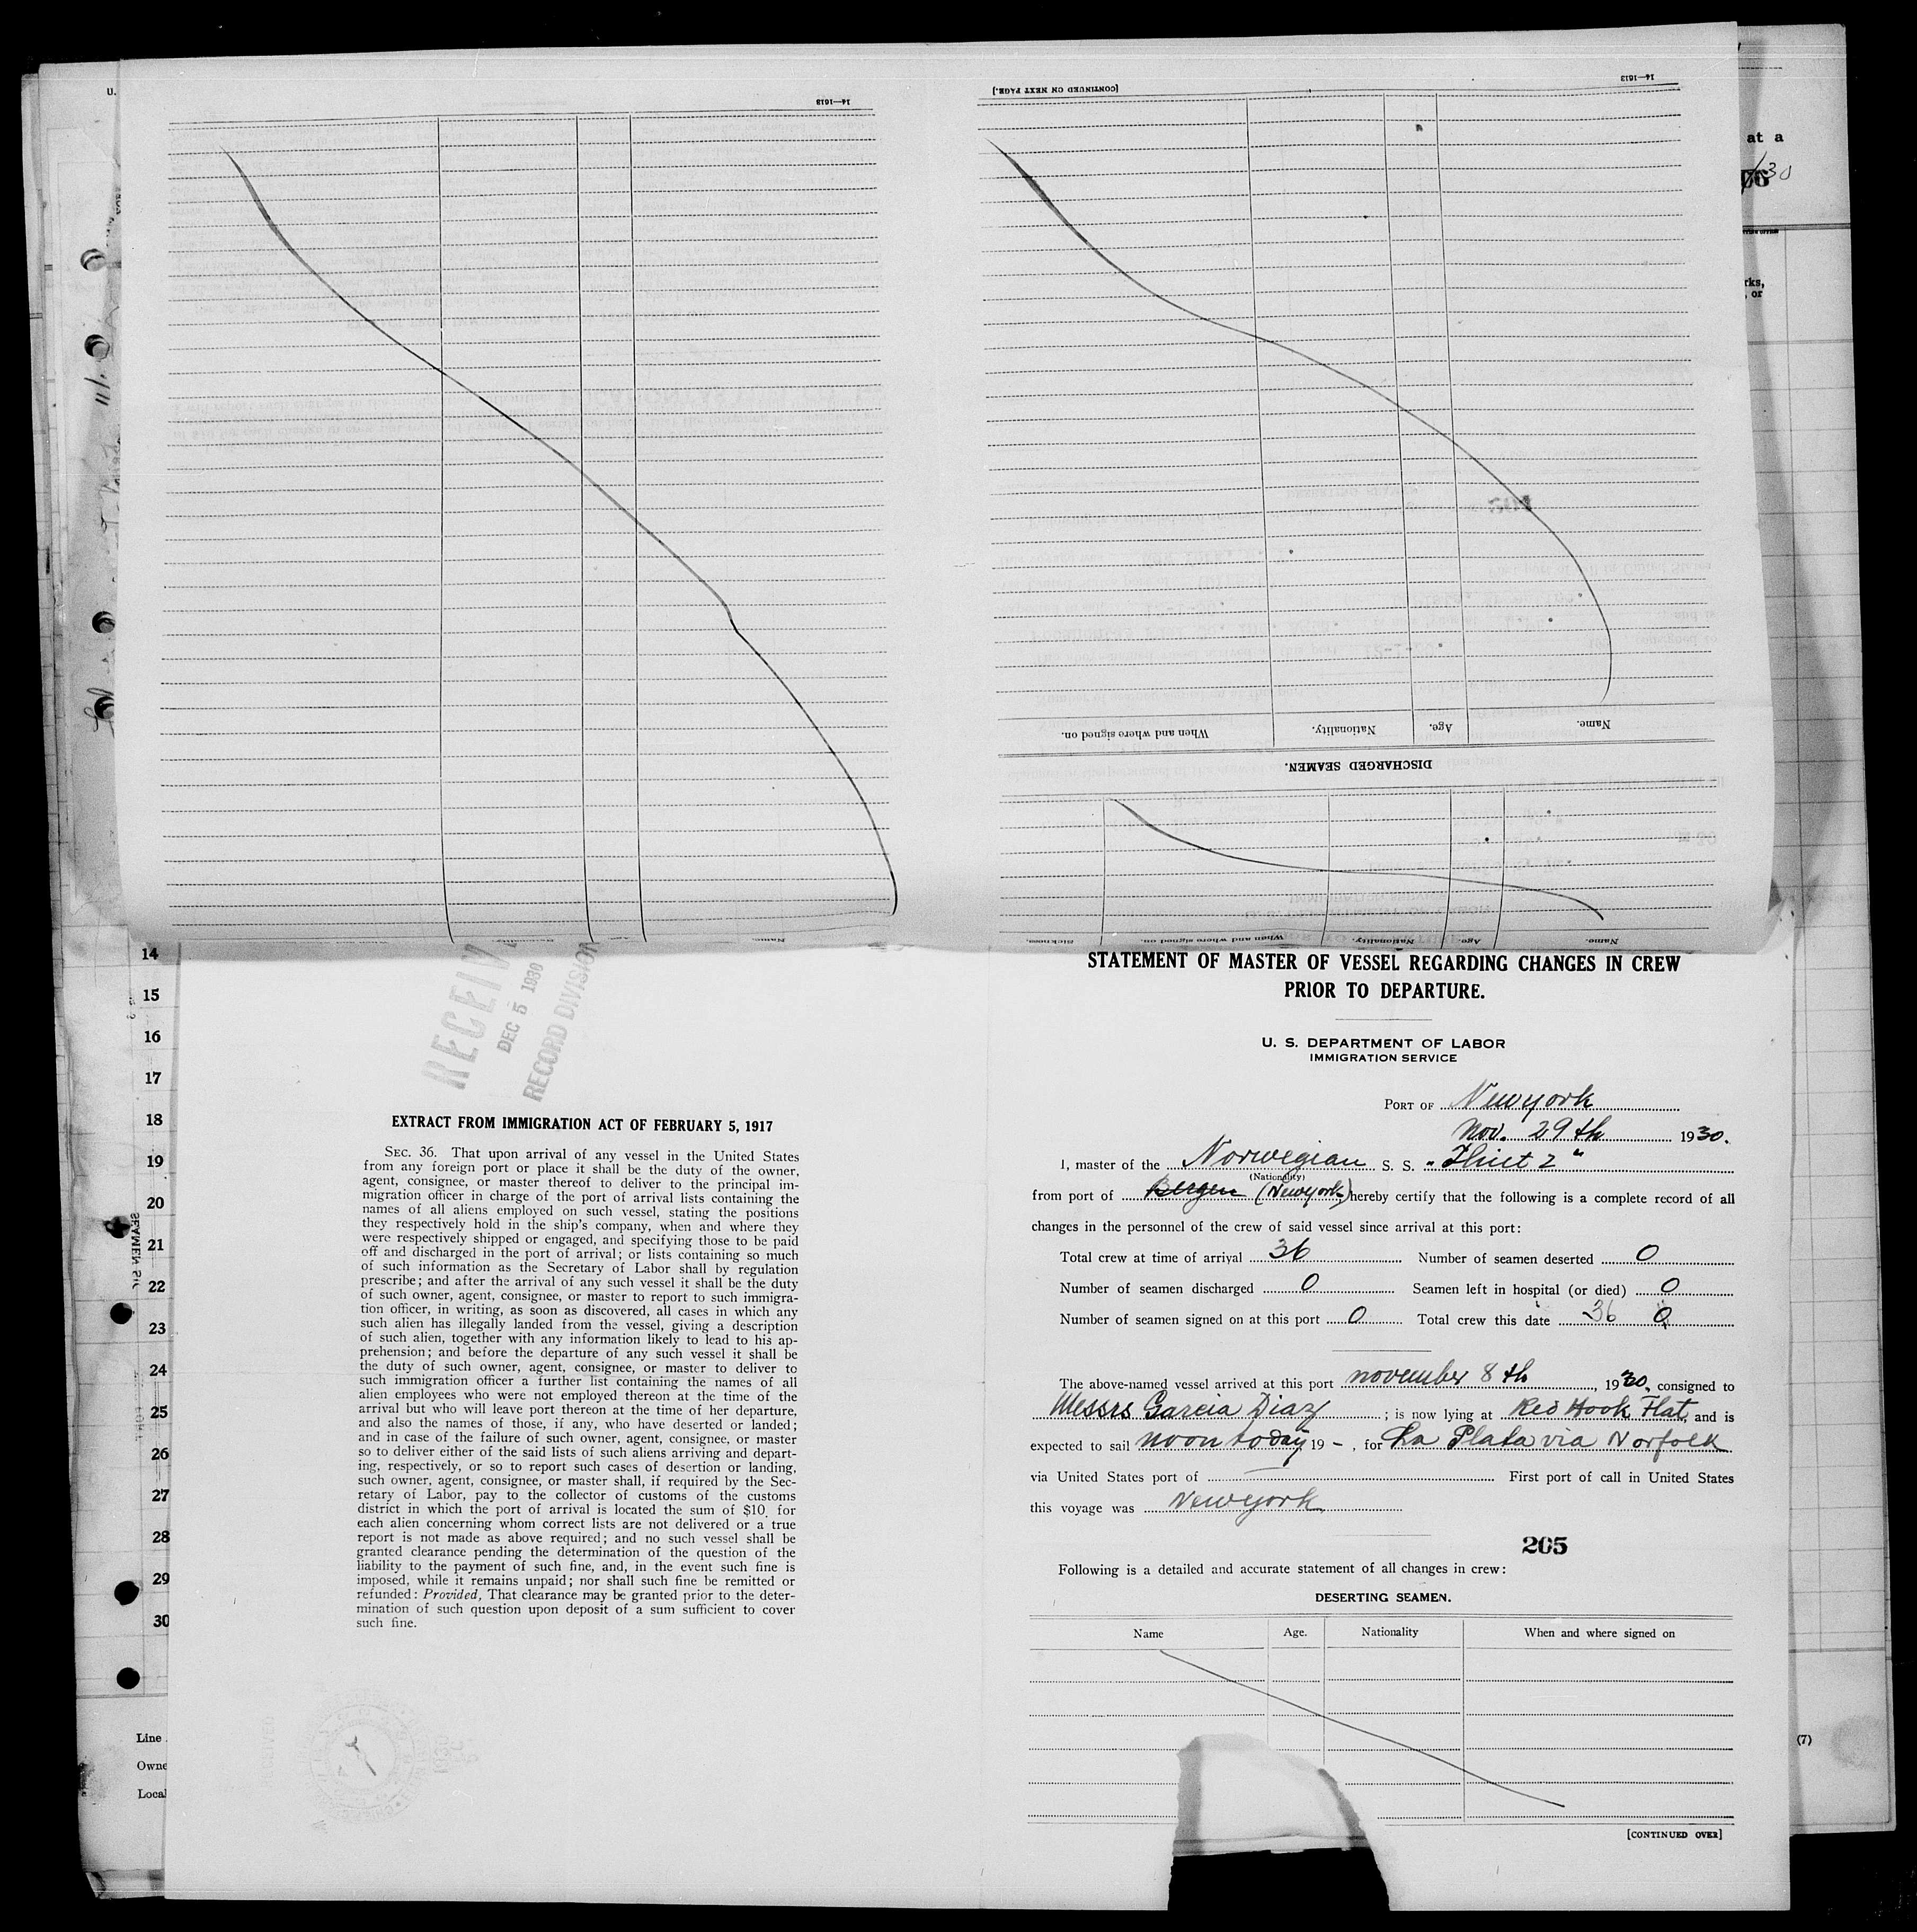 U.
14—1613
[CONTINUED ON NEXT PAGE.]
14—1613
at a
30
rks,
, or
When and where signed on.
Nationality.
Age.
Name.
DISCHARGED SEAMEN.
Sickness.
When and where signed on.
Nationality.
Age.
Name.
14
15
16
17
18
19
20
21
22
23
24
25
26
27
28
29
30
Line
Owne
Local
(7)
RECEIV
DEC 5 1930
RECORD DIVISION
EXTRACT FROM IMMIGRATION ACT OF FEBRUARY 5, 1917
SEC. 36. That upon arrival of any vessel in the United States
from any foreign port or place it shall be the duty of the owner,
agent, consignee, or master thereof to deliver to the principal im-
migration officer in charge of the port of arrival lists containing the
names of all aliens employed on such vessel, stating the positions
they respectively hold in the ship's company, when and where they
were respectively shipped or engaged, and specifying those to be paid
off and discharged in the port of arrival; or lists containing so much
of such information as the Secretary of Labor shall by regulation
prescribe; and after the arrival of any such vessel it shall be the duty
of such owner, agent, consignee, or master to report to such immigra-
tion officer, in writing, as soon as discovered, all cases in which any
such alien has illegally landed from the vessel, giving a description
of such alien, together with any information likely to lead to his ap-
prehension; and before the departure of any such vessel it shall be
the duty of such owner, agent, consignee, or master to deliver to
such immigration officer a further list containing the names of all
alien employees who were not employed thereon at the time of the
arrival but who will leave port thereon at the time of her departure,
and also the names of those, if any, who have deserted or landed;
and in case of the failure of such owner, agent, consignee, or master
so to deliver either of the said lists of such aliens arriving and depart-
ing, respectively, or so to report such cases of desertion or landing,
such owner, agent, consignee, or master shall, if required by the Sec-
retary of Labor, pay to the collector of customs of the customs
district in which the port of arrival is located the sum of $10 for
each alien concerning whom correct lists are not delivered or a true
report is not made as above required; and no such vessel shall be
granted clearance pending the determination of the question of the
liability to the payment of such fine, and, in the event such fine is
imposed, while it remains unpaid; nor shall such fine be remitted or
refunded: Provided, That clearance may be granted prior to the deter-
mination of such question upon deposit of a sum sufficient to cover
such fine.
STATEMENT OF MASTER OF VESSEL REGARDING CHANGES IN CREW
PRIOR TO DEPARTURE.
U. S. DEPARTMENT OF LABOR
IMMIGRATION SERVICE
PORT OF Newyork
Nov. 29th 1930.
I, master of the Norwegian S. S.
(Nationality)
from port of Bergen (Newyork) hereby certify that the following is a complete record of all
changes in the personnel of the crew of said vessel since arrival at this port:
Total crew at time of arrival 36 Number of seamen deserted 0
Number of seamen discharged 0 Seamen left in hospital (or died) 0
Number of seamen signed on at this port 0 Total crew this date 36 0
The above-named vessel arrived at this port november 8th, 1930, consigned to
Messrs Garcia Diaz; is now lying at Red Hook Flat, and is
expected to sail noon today 19 -, for La Plata via Norfolk
via United States port of First port of call in United States
this voyage was Newyork
205
Following is a detailed and accurate statement of all changes in crew:
DESERTING SEAMEN.
Name Age. Nationality When and where signed on
[CONTINUED OVER]